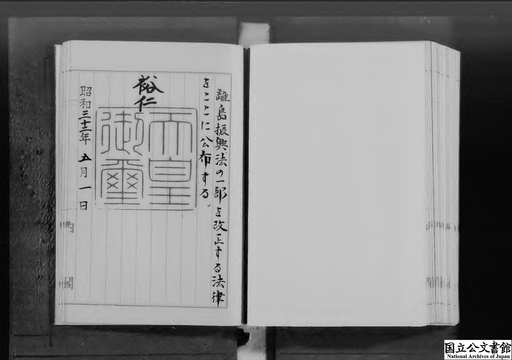 離島振興法の一部を改正する法律
をここに公布する。
裕仁
天皇
御璽
昭和三十三年五月一日
内閣
国立公文書館
National Archives of Japan